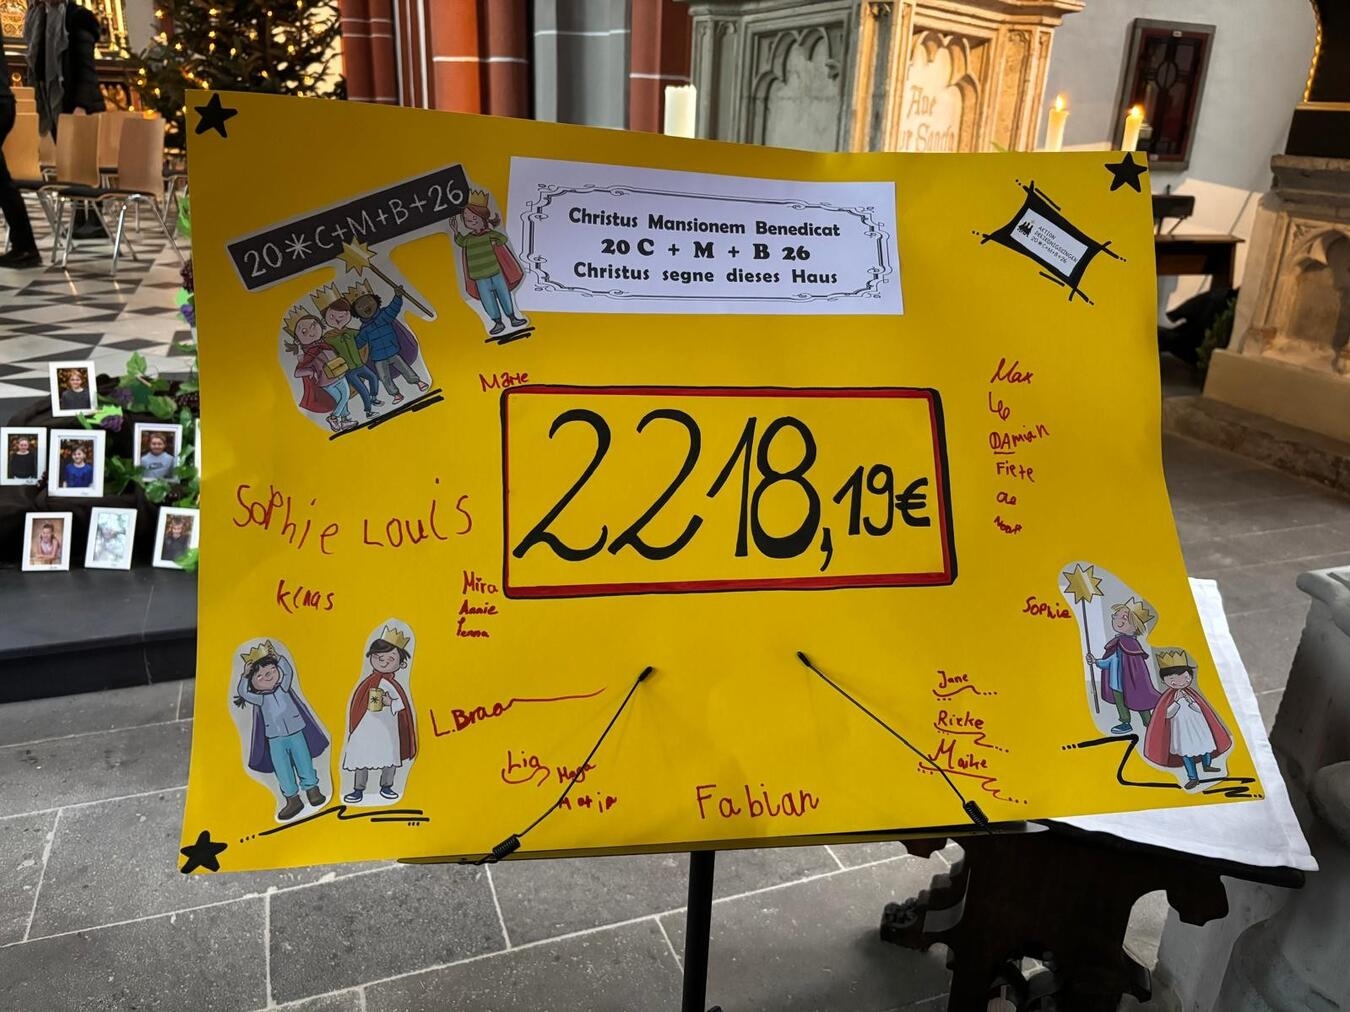 20*C+M+B+26
Christus Mansionem Benedicat
20 C + M + B 26
Christus segne dieses Haus
AKTION
DREIKÖNIGSSINGEN
20*C+M+B+26
Ave
Marie
2218,19€
Max
Leo
DAmian
Fiete
Sophie Louis
Klaas
Mira
Annie
Sophie
L.Braa
Lia
Maja
Fabian
Jane
Rieke
Maike